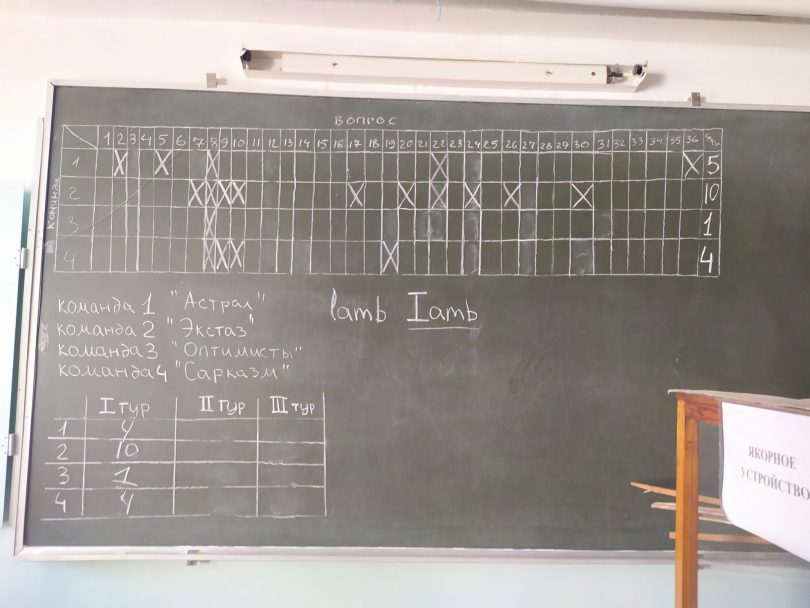 ВОПРОС
1 2 3 4 5 6 7 8 9 10 11 12 13 14 15 16 17 18 19 20 21 22 23 24 25 26 27 28 29 30 31 32 33 34 35 36
команда
1 X X X X X 5
2 X X X X X X X X X X 10
3 X 1
4 X X X X 4
команда 1 "Астрал"
команда 2 "Экстаз"
команда 3 "Оптимисты"
команда 4 "Сарказм"
lamb Iamb
I тур II тур III тур
1 4
2 10
3 1
4 4
ЯКОРНОЕ
УСТРОЙСТВО